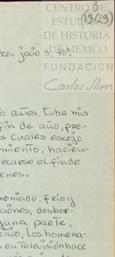 CENTRO DE
ESTUDIOS
DE HISTORIA
DE MÉXICO
FUNDACIÓN
Carlos Slim
julio 3,
años, tube mis
fin de año, pre-
s cuales escojo
miento, hacien-
carse el fin de
enes.
frío y
ciones, desbor-
guna parte,
los homena-
en Televisión hace